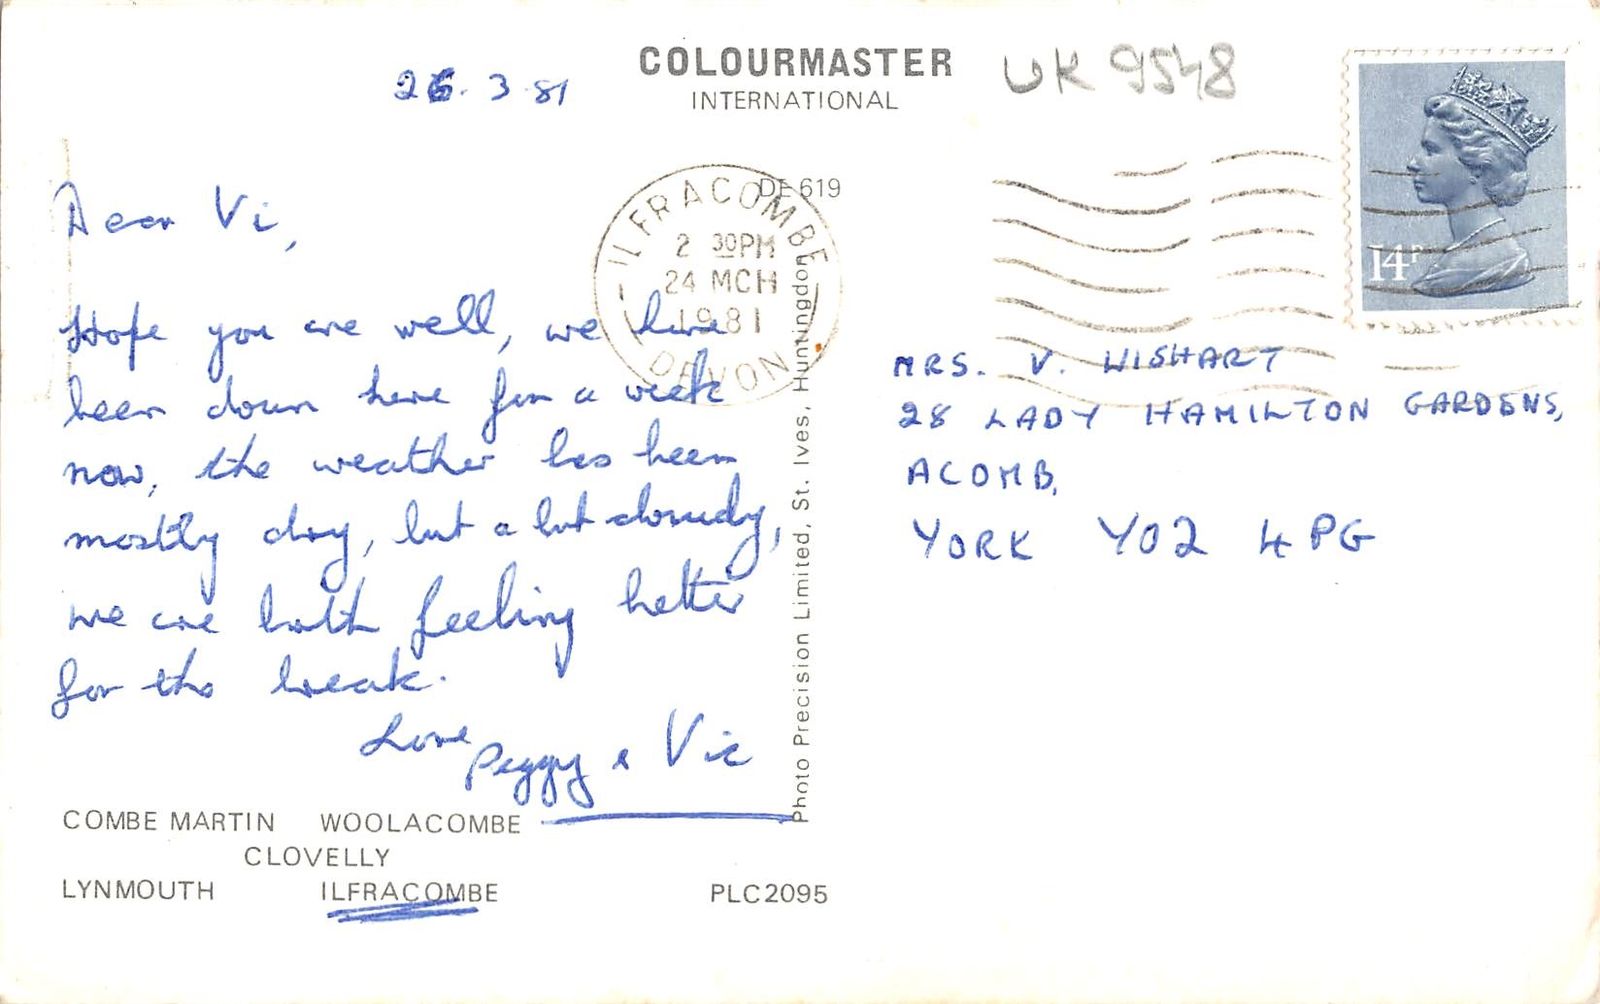 COLOURMASTER
INTERNATIONAL
UK 9548
26.3.81
DE 619
ILFRACOMBE
2 30PM
24 MCH
1981
DEVON
14P
Dear Vi,
Hope you are well, we have
been down here for a week
now, the weather has been
mostly dry, but a bit cloudy,
we are both feeling better
for the break.
Love
Peggy & Vic
MRS. V. WISHART
28 LADY HAMILTON GARDENS,
ACOMB,
YORK YO2 4PG
Photo Precision Limited, St. Ives, Huntingdon
COMBE MARTIN WOOLACOMBE
CLOVELLY
LYNMOUTH ILFRACOMBE
PLC2095